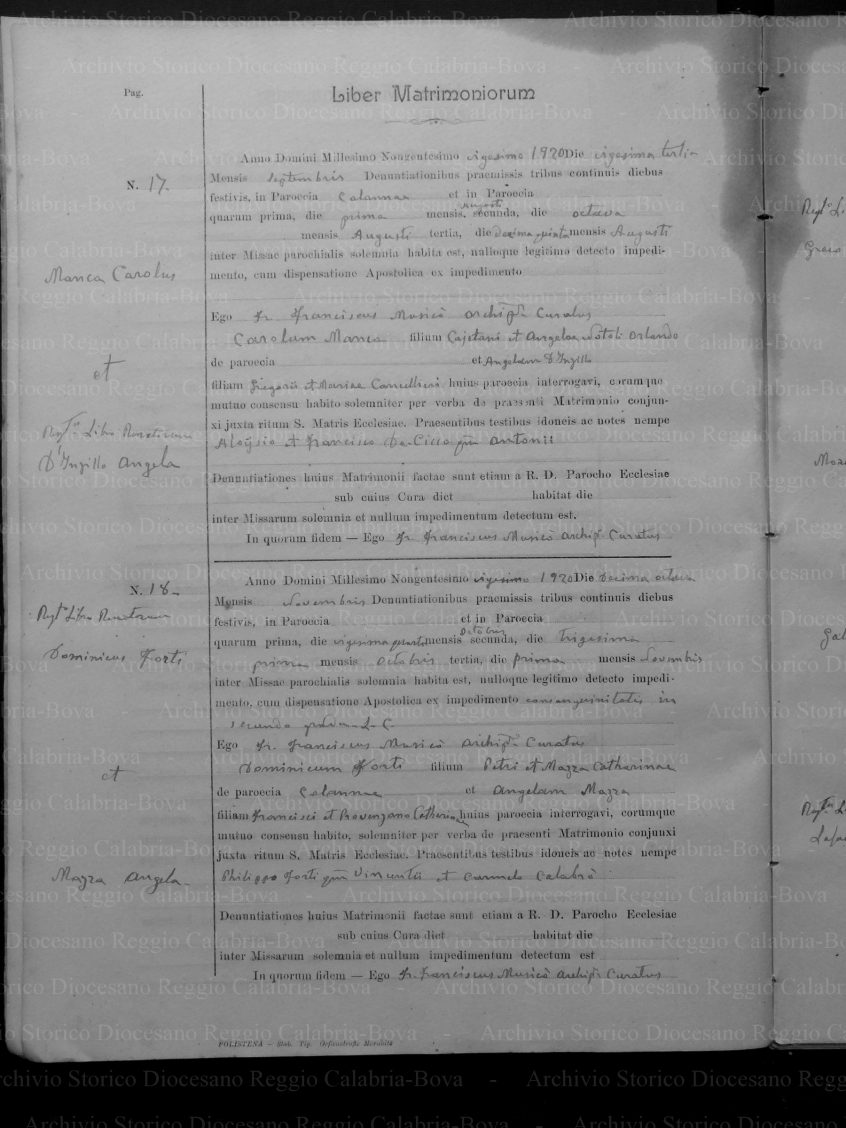 Pag.
Liber Matrimoniorum
Anno Domini Millesimo Nongentesimo vigesimo 1920 Die vigesima tertia
N. 17.
Mensis Septembris Denuntiationibus praemissis tribus continuis diebus
festivis, in Paroecia Calannae et in Paroecia
quarum prima, die prima mensis Augusti secunda, die octava
mensis Augusti tertia, die decima quinta mensis Augusti
inter Missae parochialis solemnia habita est, nulloque legitimo detecto impedi-
mento, cum dispensatione Apostolica ex impedimento
Manca Carolus
Ego Fr. Franciscus Musicò Archip. Curatus
Carolum Manca filium Cajetani et Angelae Notoli Orlando
de paroecia et Angelam D'Ingillo
et
filiam Gregorii et Mariae Cancelleri huius paroecia interrogavi, corumque
mutuo consensu habito solemniter per verba de praesenti Matrimonio conjun-
xi juxta ritum S. Matris Ecclesiae. Praesentibus testibus idoneis ac notes nempe
Aloÿsio et Francisco De-Cicco qm Antonii
Libro
D'Ingillo Angela
Denuntiationes huius Matrimonii factae sunt etiam a R. D. Parocho Ecclesiae
sub cuius Cura dict habitat die
inter Missarum solemnia et nullum impedimentum detectum est.
In quorum fidem — Ego Fr. Franciscus Musicò Archip. Curatus
Anno Domini Millesimo Nongentesimo vigesimo 1920 Die Decima octava
N. 18-
Mensis Novembris Denuntiationibus praemissis tribus continuis diebus
Libro
festivis, in Paroecia et in Paroecia
quarum prima, die vigesima quarta mensis Octobris secunda, die trigesima
prima mensis Octobris tertia, die prima mensis Novembris
Dominicus Forti
inter Missae parochialis solemnia habita est, nulloque legitimo detecto impedi-
mento, cum dispensatione Apostolica ex impedimento consanguinitatis in
secundo gradu L. C.
Ego Fr. Franciscus Musicò Archip. Curatus
Dominicum Forti filium Petri et Mazza Catharinae
et
de paroecia Calannae et Angelam Mazza
filiam Francisci et Provenzano Catherinae huius paroecia interrogavi, corumque
mutuo consensu habito, solemniter per verba de praesenti Matrimonio conjunxi
juxta ritum S. Matris Ecclesiae. Praesentibus testibus idoneis ac notes nempe
Philippo Forti qm Vincentii et Carmelo Calabrò
Mazza Angela-
Denuntiationes huius Matrimonii factae sunt etiam a R. D. Parocho Ecclesiae
sub cuius Cura dict habitat die
inter Missarum solemnia et nullum impedimentum detectum est
In quorum fidem — Ego Fr. Franciscus Musicò Archip. Curatus
POLISTENA – Stab. Tip. Orfanotrofio Morabito
Archivio Storico Diocesano Reggio Calabria-Bova